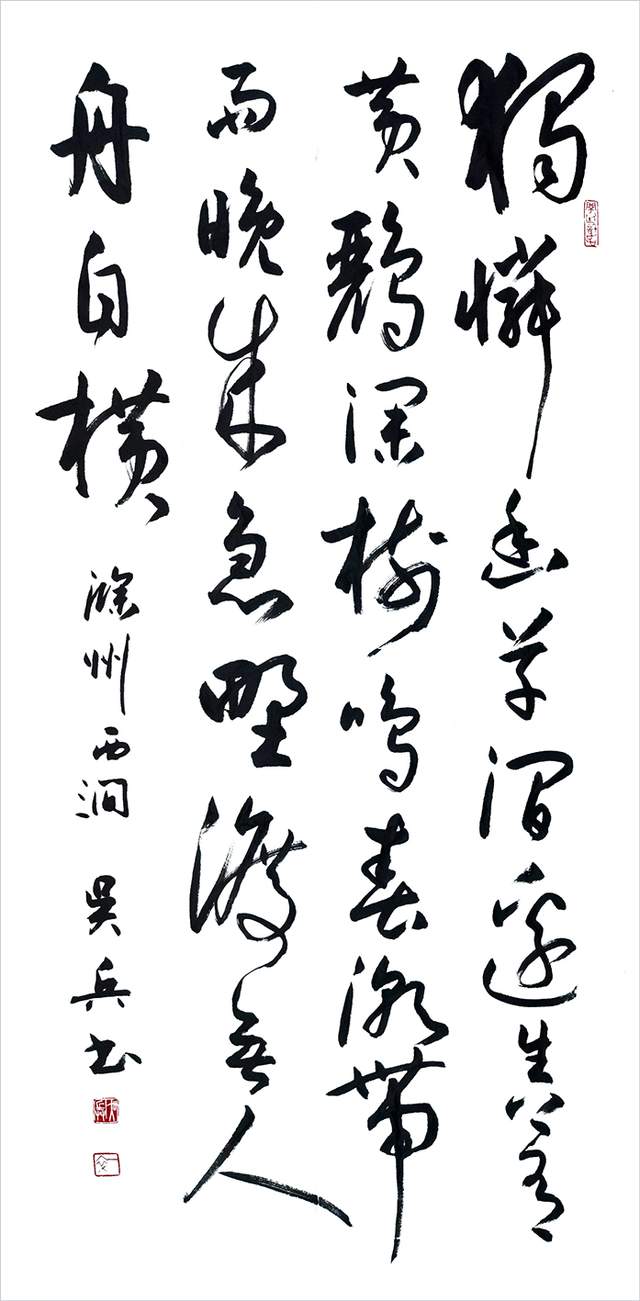 獨憐幽草澗邊生上有
黃鸝深樹鳴春潮帶
雨晚來急野渡無人
舟自橫 滁州西澗 吳兵書